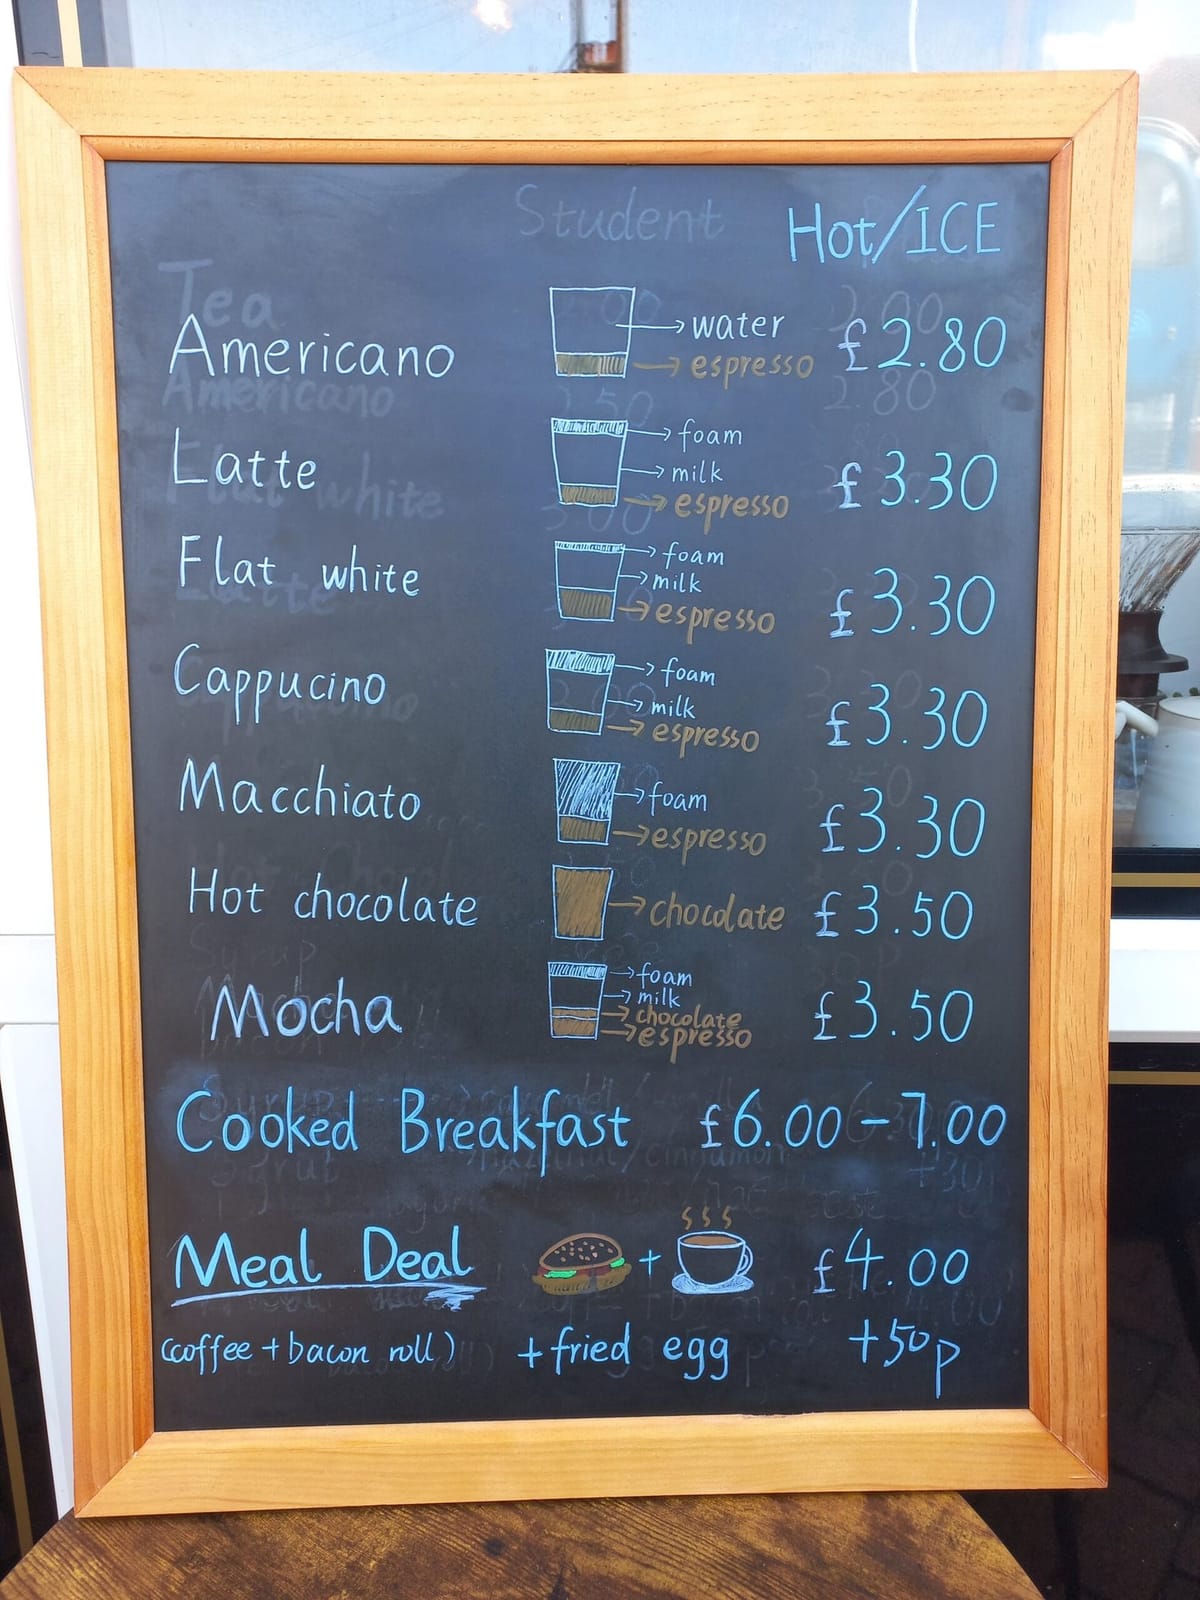 Student Hot/ICE
Tea
Americano water £2.80
espresso
Americano 2.80
Latte foam £3.30
milk
espresso
Flat white
Flat white foam £3.30
milk
espresso
Latte
Cappucino foam £3.30
milk
espresso
Macchiato foam £3.30
espresso
Hot chocolate chocolate £3.50
Syrup
Mocha foam £3.50
milk
chocolate
espresso
Cooked Breakfast £6.00-7.00
Meal Deal + £4.00
(coffee + bacon roll) + fried egg +50p